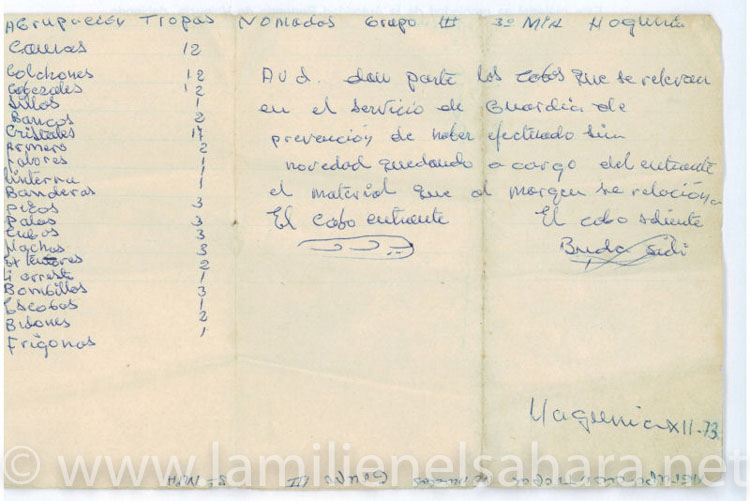 Agrupación Tropas Nomadas Grupo III 3º MIA Hagunia
Camas 12
Colchones 12
Cabezales 12
Sillas 1
Bancos 2
Cristales 17
Armero 2
Faroles 1
Linterna 1
Banderas 1
Picos 3
Palas 3
Cubos 3
Machos 3
Extintores 2
arreste 1
Bombillas 3
Escobas 1
Bidones 2
Frigonas 1
A vd. dan parte los cabos que se relevan
en el servicio de Guardia de
prevención de haber efectuado sin
novedad quedando a cargo del entrante
el material que al margen se relaciona
El cabo entrante El cabo saliente
Buda Sidi
Hagunia XII-73
Agrupación Tropas Nomadas Grupo III 3º MIA
© www.lamilienelsahara.net